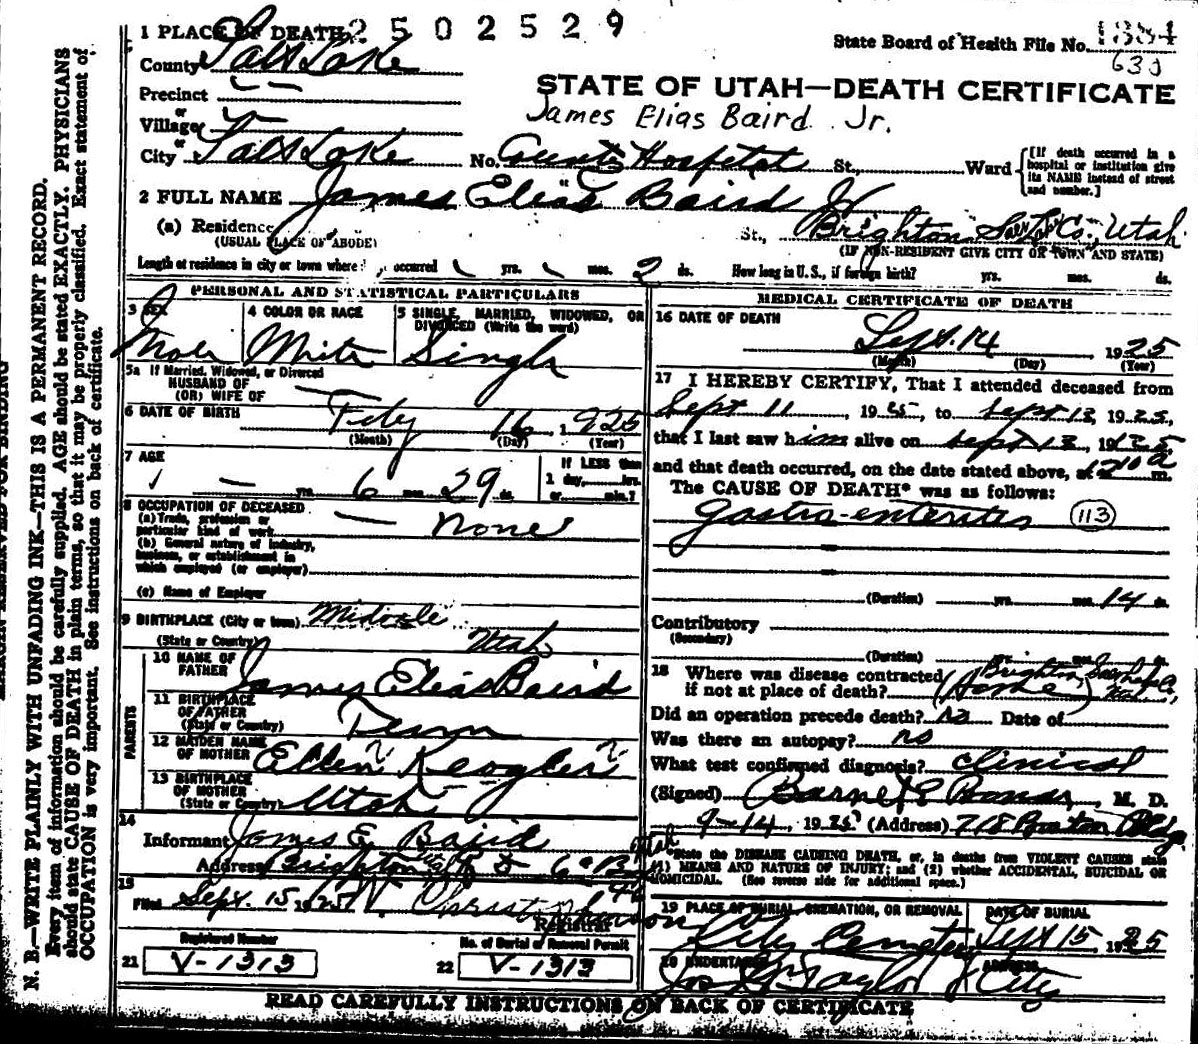 2502529
1 PLACE OF DEATH
State Board of Health File No. 1384
County Salt Lake
630
Precinct
STATE OF UTAH—DEATH CERTIFICATE
or
Village
James Elias Baird Jr.
or
City Salt Lake No. County Hospital St., Ward
[If death occurred in a
hospital or institution give
its NAME instead of street
and number.]
2 FULL NAME James Elias Baird Jr
(a) Residence St., Brighton Salt Lake Co., Utah
(USUAL PLACE OF ABODE) (IF NON-RESIDENT GIVE CITY OR TOWN AND STATE)
Length of residence in city or town where occurred yrs. mos. 2 ds. How long in U. S., if foreign birth? yrs. mos. ds.
PERSONAL AND STATISTICAL PARTICULARS
3 SEX
Male
4 COLOR OR RACE
White
5 SINGLE, MARRIED, WIDOWED, OR
DIVORCED (Write the word)
Single
5a If Married, Widowed, or Divorced
HUSBAND OF
(OR) WIFE OF
6 DATE OF BIRTH Feby 16, 1925
(Month) (Day) (Year)
7 AGE
— yrs. 6 mos. 29 ds.
If LESS than
1 day, hrs.
or min.?
8 OCCUPATION OF DECEASED
(a) Trade, profession or
particular kind of work None
(b) General nature of industry,
business, or establishment in
which employed (or employer)
(c) Name of Employer
9 BIRTHPLACE (City or town) Midvale
(State or Country) Utah
PARENTS
10 NAME OF
FATHER James Elias Baird
11 BIRTHPLACE
OF FATHER
(State or Country) Tenn
12 MAIDEN NAME
OF MOTHER Ellen Keogler
13 BIRTHPLACE
OF MOTHER
(State or Country) Utah
14
Informant James E Baird
Address Brighton Utah
15
Filed Sept. 15 1925
Registrar
Registered Number
21 V-1313
No. of Burial or Removal Permit
22 V-1313
MEDICAL CERTIFICATE OF DEATH
16 DATE OF DEATH
Sept. 14 1925
(Month) (Day) (Year)
17 I HEREBY CERTIFY, That I attended deceased from
Sept 11, 1925, to Sept 13, 1925,
that I last saw him alive on Sept 13, 1925,
and that death occurred, on the date stated above, m.
The CAUSE OF DEATH* was as follows:
gastro-enteritis 113
(Duration) yrs. mos. 14 ds.
Contributory
(Secondary)
(Duration) yrs. mos. ds.
18 Where was disease contracted
if not at place of death? (Home) Brighton Salt Lake Co.,
Did an operation precede death? no Date of
Was there an autopsy? no
What test confirmed diagnosis? clinical
(Signed) M. D.
9-14, 1925 (Address) 718 Boston Bldg
*State the DISEASE CAUSING DEATH, or, in deaths from VIOLENT CAUSES state
(1) MEANS AND NATURE OF INJURY; and (2) whether ACCIDENTAL, SUICIDAL OR
HOMICIDAL. (See reverse side for additional space.)
19 PLACE OF BURIAL CREMATION, OR REMOVAL
City Cemetery
DATE OF BURIAL
Sept 15, 1925
20 UNDERTAKER
Taylor
ADDRESS
City
READ CAREFULLY INSTRUCTIONS ON BACK OF CERTIFICATE
MARGIN RESERVED FOR BINDING
N. B.—WRITE PLAINLY WITH UNFADING INK—THIS IS A PERMANENT RECORD.
Every item of information should be carefully supplied. AGE should be stated EXACTLY. PHYSICIANS
should state CAUSE OF DEATH in plain terms, so that it may be properly classified. Exact statement of
OCCUPATION is very important. See instructions on back of certificate.